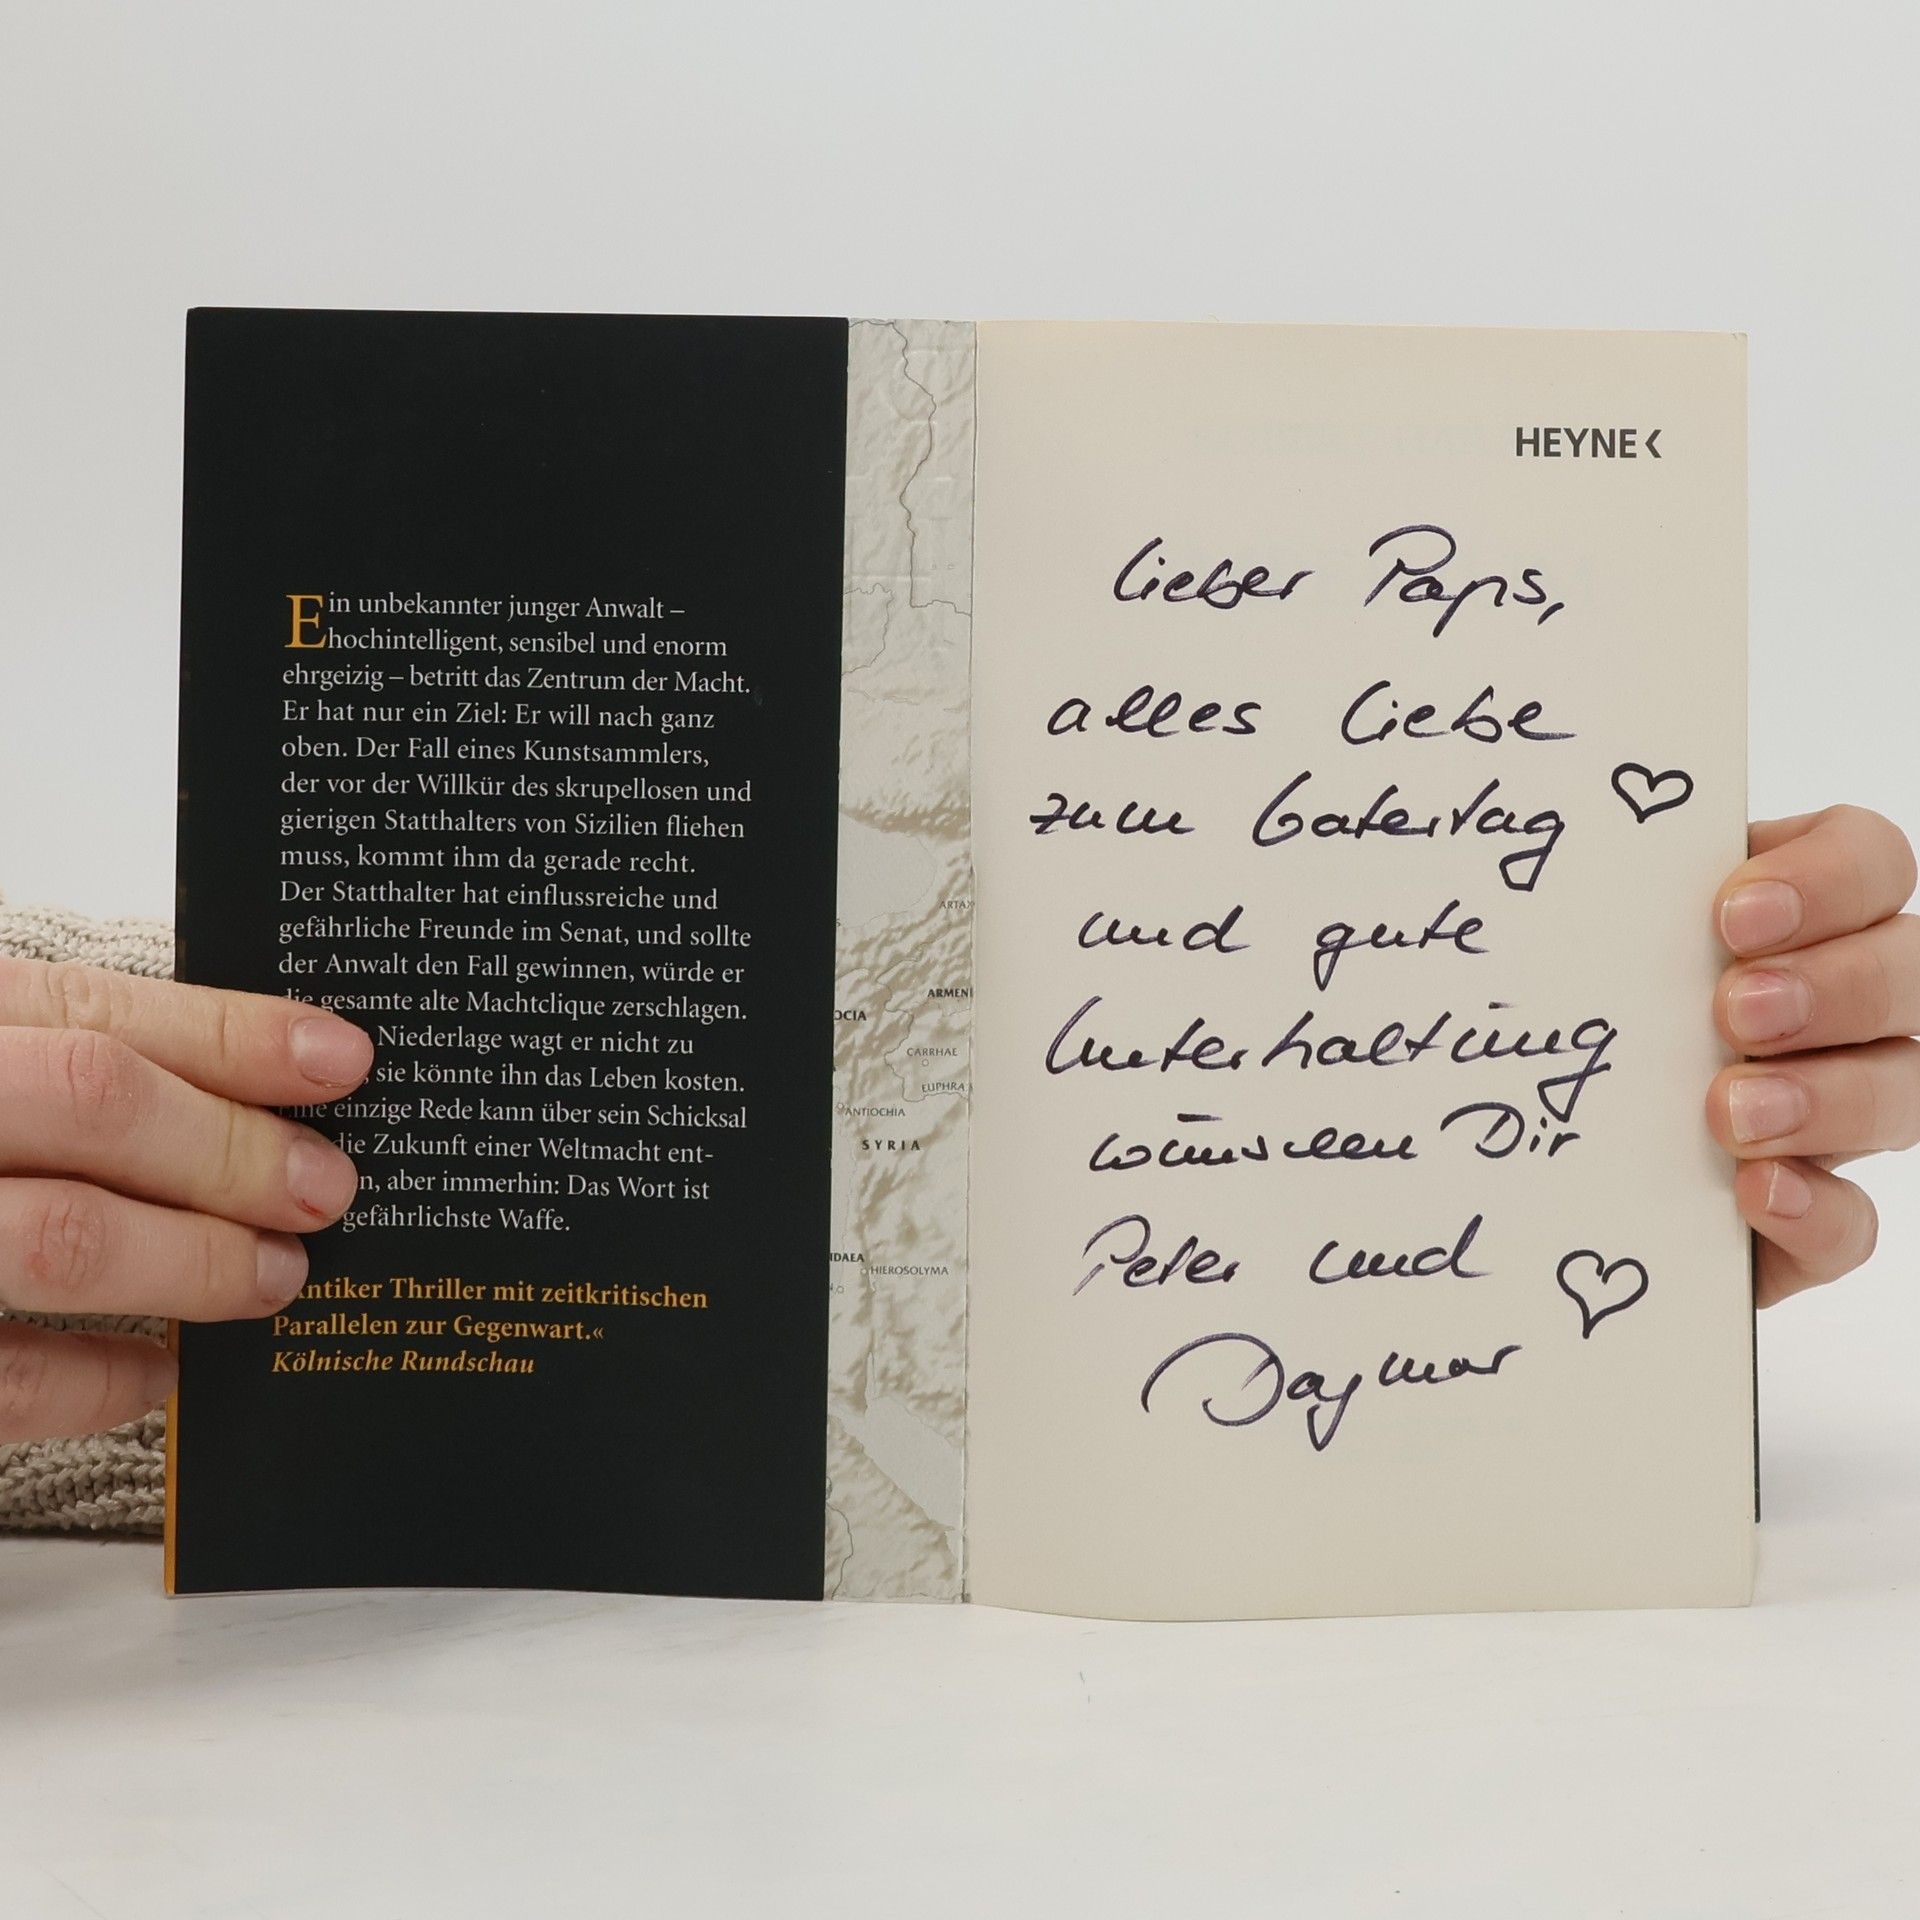 Ein unbekannter junger Anwalt –
hochintelligent, sensibel und enorm
ehrgeizig – betritt das Zentrum der Macht.
Er hat nur ein Ziel: Er will nach ganz
oben. Der Fall eines Kunstsammlers,
der vor der Willkür des skrupellosen und
gierigen Statthalters von Sizilien fliehen
muss, kommt ihm da gerade recht.
Der Statthalter hat einflussreiche und
gefährliche Freunde im Senat, und sollte
der Anwalt den Fall gewinnen, würde er
die gesamte alte Machtclique zerschlagen.
Niederlage wagt er nicht zu
sie könnte ihn das Leben kosten.
Eine einzige Rede kann über sein Schicksal
die Zukunft einer Weltmacht ent-
aber immerhin: Das Wort ist
gefährlichste Waffe.
Antiker Thriller mit zeitkritischen
Parallelen zur Gegenwart.«
Kölnische Rundschau
ARMENI
CARRHAE
EUPHRA
ANTIOCHIA
SYRIA
HIEROSOLYMA
HEYNE<
Lieber Paps,
alles Liebe
zum Vatertag ♡
und gute
Unterhaltung
wünschen Dir
Peter und ♡
Dagmar